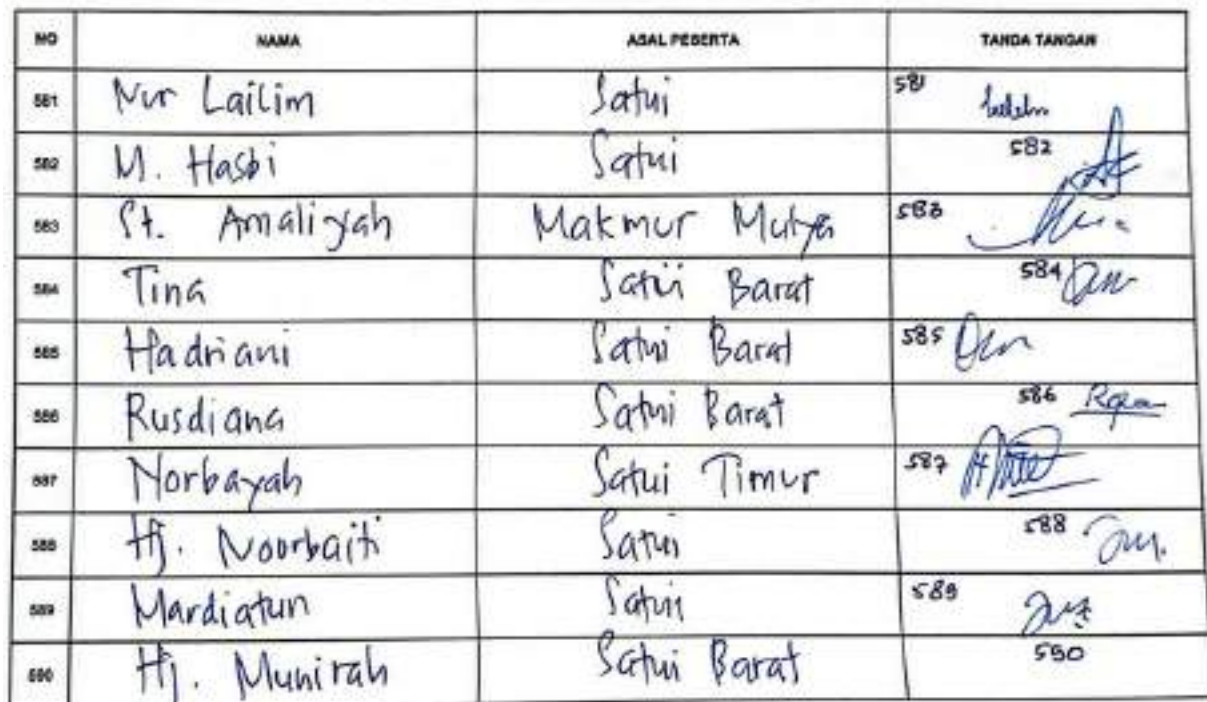 NO NAMA ASAL PESERTA TANDA TANGAN
581 Nur Lailim Satui 581
582 M. Hasbi Satui 582
583 St. Amaliyah Makmur Mulya 583
584 Tina Satui Barat 584
585 Hadriani Satui Barat 585
586 Rusdiana Satui Barat 586
587 Norbayah Satui Timur 587
588 Hj. Noorbaiti Satui 588
589 Mardiatun Satui 589
590 Hj. Munirah Satui Barat 590